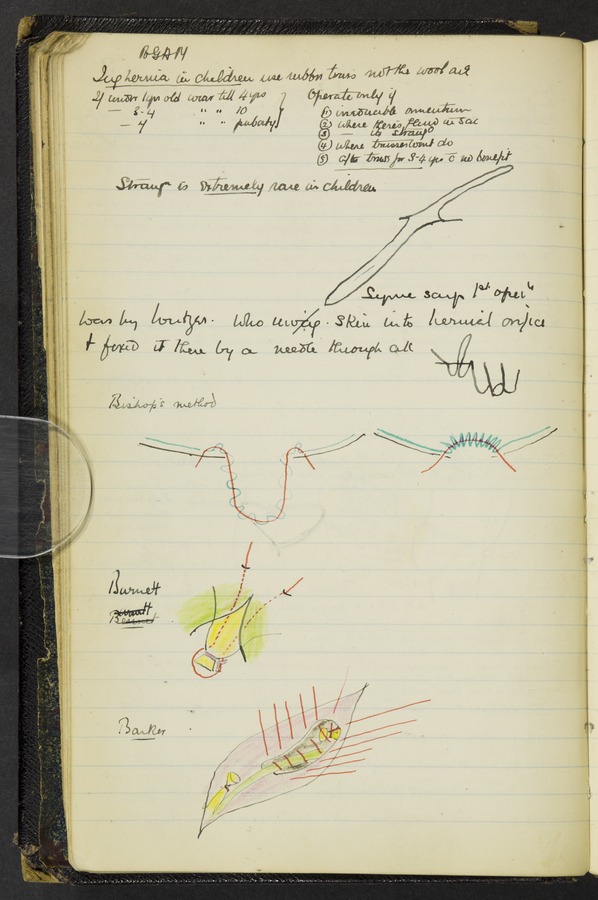 Ing hernia in children use rubber truss not the wool one
If under 1 yrs old wear till 4 yrs
— 3-4 " " 10
— 4 " " puberty
Operate only if
① irreducible omentum
② where there's fluid in sac
③ — is strang^d
④ where trusses won't do
⑤ after truss for 3-4 yrs c̄ no benefit
Strang is extremely rare in children
Syme says 1st oper^n
was by Wutzer. Who invag. Skin into hernial orifice
+ fixed it there by a needle through all
Bishop's method
Burnett
Barker